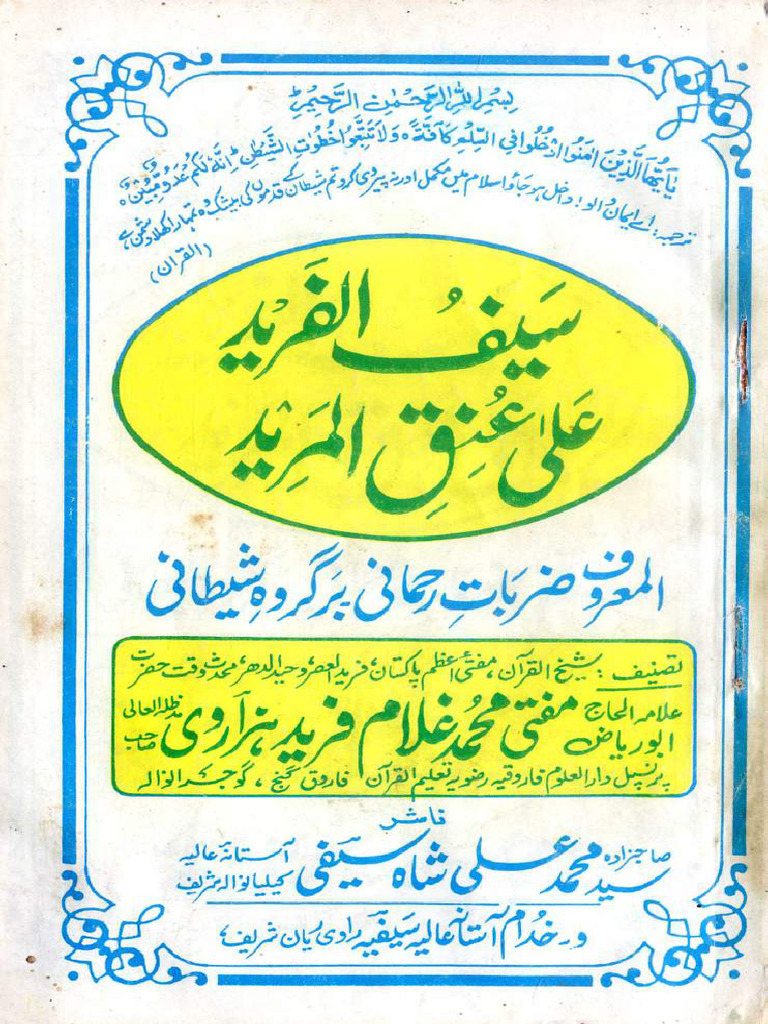 بِسْمِ اللهِ الرَّحْمٰنِ الرَّحِيْمِ
يٰاَيُّهَا الَّذِيْنَ اٰمَنُوا ادْخُلُوا فِي السِّلْمِ كَآفَّةً وَلَا تَتَّبِعُوا خُطُوٰتِ الشَّيْطٰنِ اِنَّهٗ لَكُمْ عَدُوٌّ مُّبِيْنٌ
ترجمہ: اے ایمان والو! داخل ہو جاؤ اسلام میں مکمل اور نہ پیروی کرو تم شیطان کے قدموں کی بیشک وہ تمہارا کھلا دشمن ہے
(القرآن)
سَیفُ الفَرید
عَلیٰ عُنِقِ المَرِید
المعروف ضربَاتِ رحمانی بَر گروہِ شیطانی
تصنیف: شیخ القرآن، مفتیٔ اعظم پاکستان، فرید العصر وحید الدھر، محدث وقت حضرت
علامہ الحاج ابو ریاض مفتی محمد غلام فرید ہزاروی صاحب مدظلہ العالی
پرنسپل دارالعلوم فاروقیہ رضویہ تعلیم القرآن فاروق گنج، گوجرانوالہ
ناشر
صاحبزادہ سید محمد علی شاہ سیفی آستانہ عالیہ کیلیانوالہ شریف
و خدام آستانہ عالیہ سیفیہ راوی ریان شریف